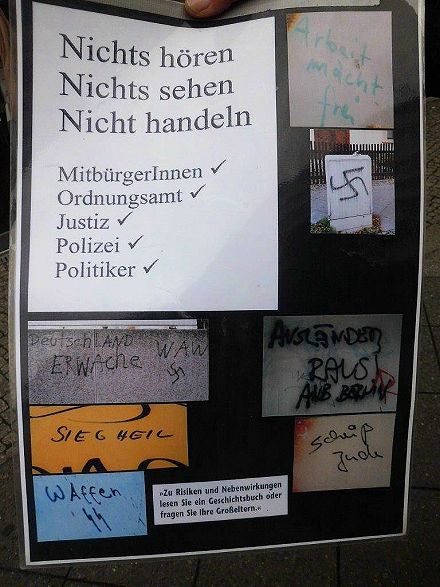 Nichts hören
Nichts sehen
Nicht handeln
MitbürgerInnen ✓
Ordnungsamt ✓
Justiz ✓
Polizei ✓
Politiker ✓
Arbeit
macht
frei
DEUTSCHLAND
ERWACHE
WAW
AUSLÄNDER
RAUS!
ANB BERLIN
SIEG HEIL
Scheiß
Jude
WAffen
»Zu Risiken und Nebenwirkungen
lesen Sie ein Geschichtsbuch oder
fragen Sie Ihre Großeltern.«